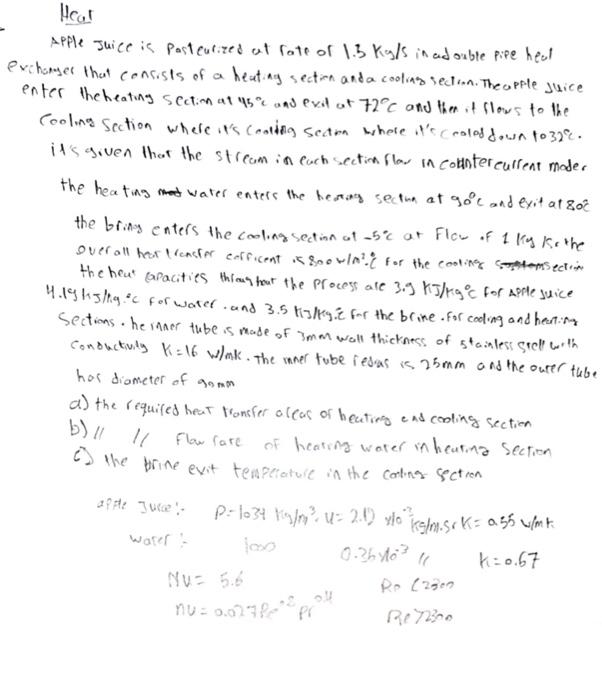 Heat
Apple Juice is Pasteurized at rate of 1.3 Kg/s in a double pipe heat
exchanger that consists of a heating section and a cooling section. The apple juice
enter the heating section at 45°c and exit at 72°c and then it flows to the
Cooling Section where it's Cooling Secton where it's cooled down to 32°c.
it's given that the stream in each section flow in countercurrent mode.
the heating water enters the heating section at 90°c and exit at 80°c
the brines enters the cooling section at -5°c at Flow of 1 Kg/s. the
overall heat transfer cofficent is 800 w/m².c for the cooling section
the heat capacities throughout the Process are 3.9 KJ/kg°c for Apple juice
4.19 kJ/kg.°c for water. and 3.5 KJ/kg.c for the brine. for cooling and heating
Sections. the inner tube is made of 3mm wall thickness of stainless steel with
Conductivity K=16 w/mk. The inner tube redus is 25mm and the outer tube
has diameter of 90mm
a) the required heat transfer areas of heating and cooling section
b) // // Flow rate of heating water in heating Section
c) the brine exit temperature in the cooling section
apple Juice:- ρ=1034 kg/m³. u= 2.12 x10⁻³ kg/m.s K= 0.56 w/mk
water :- 1000 0.36x10⁻³ // K=0.67
NU= 5.6 Re <2300
nu= 0.027Re⁰·⁸ Pr⁰·⁴ Re>2300